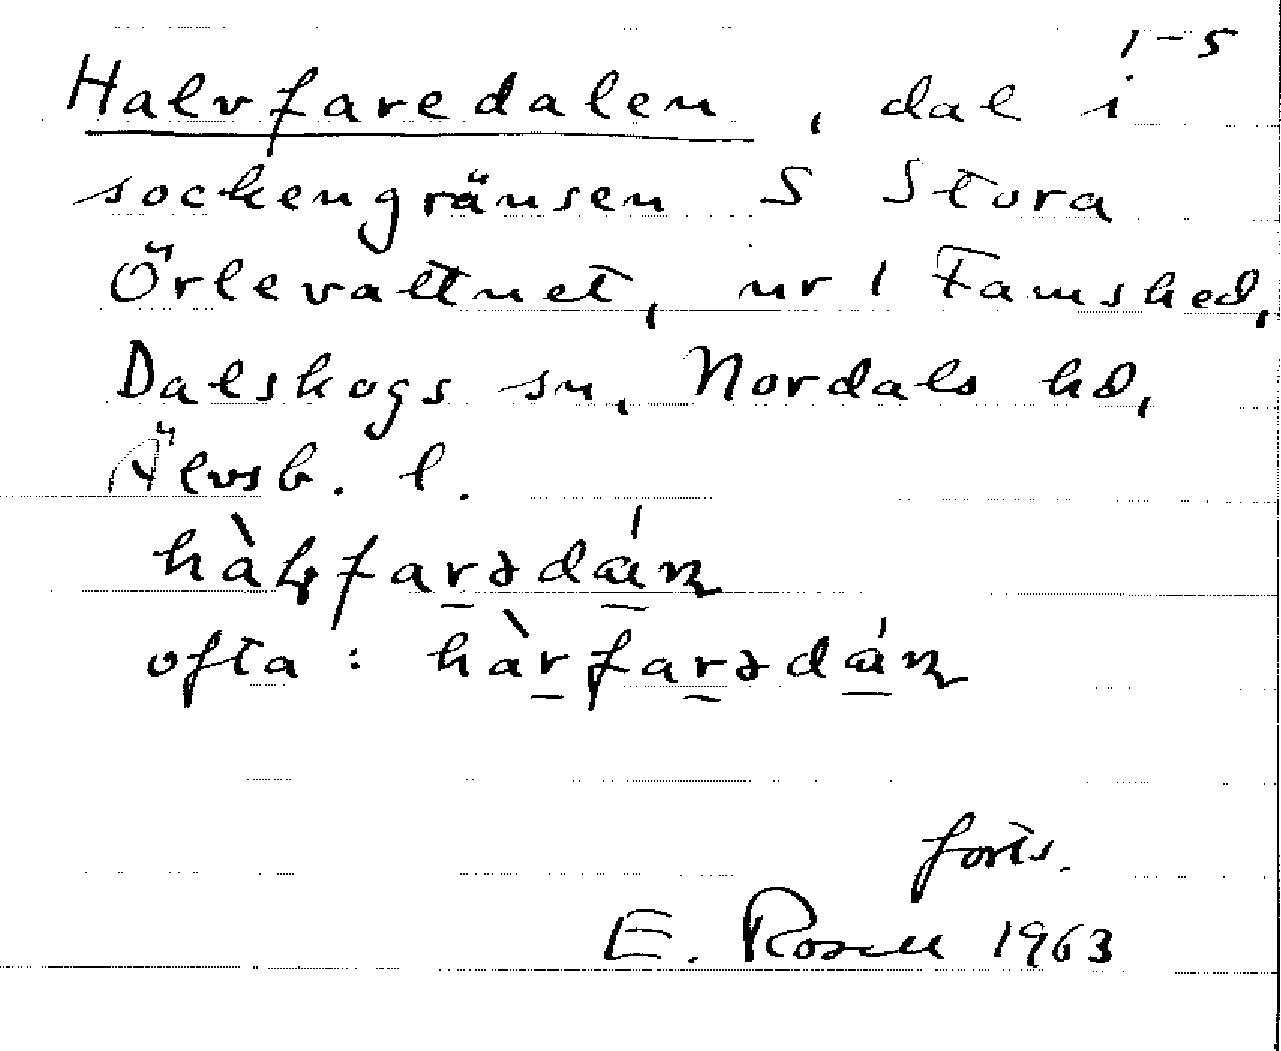 1-5
Halvfaredalen, dal i
sockengränsen S Stora
Örlevattnet, nr 1 Famshed,
Dalskogs sn, Nordals hd,
Älvsb. l.
ofta:
forts.
E. Rosell 1963